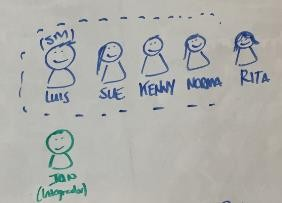 (SM)
LUIS SUE KENNY NORMA RITA
JAN
(Integrador)